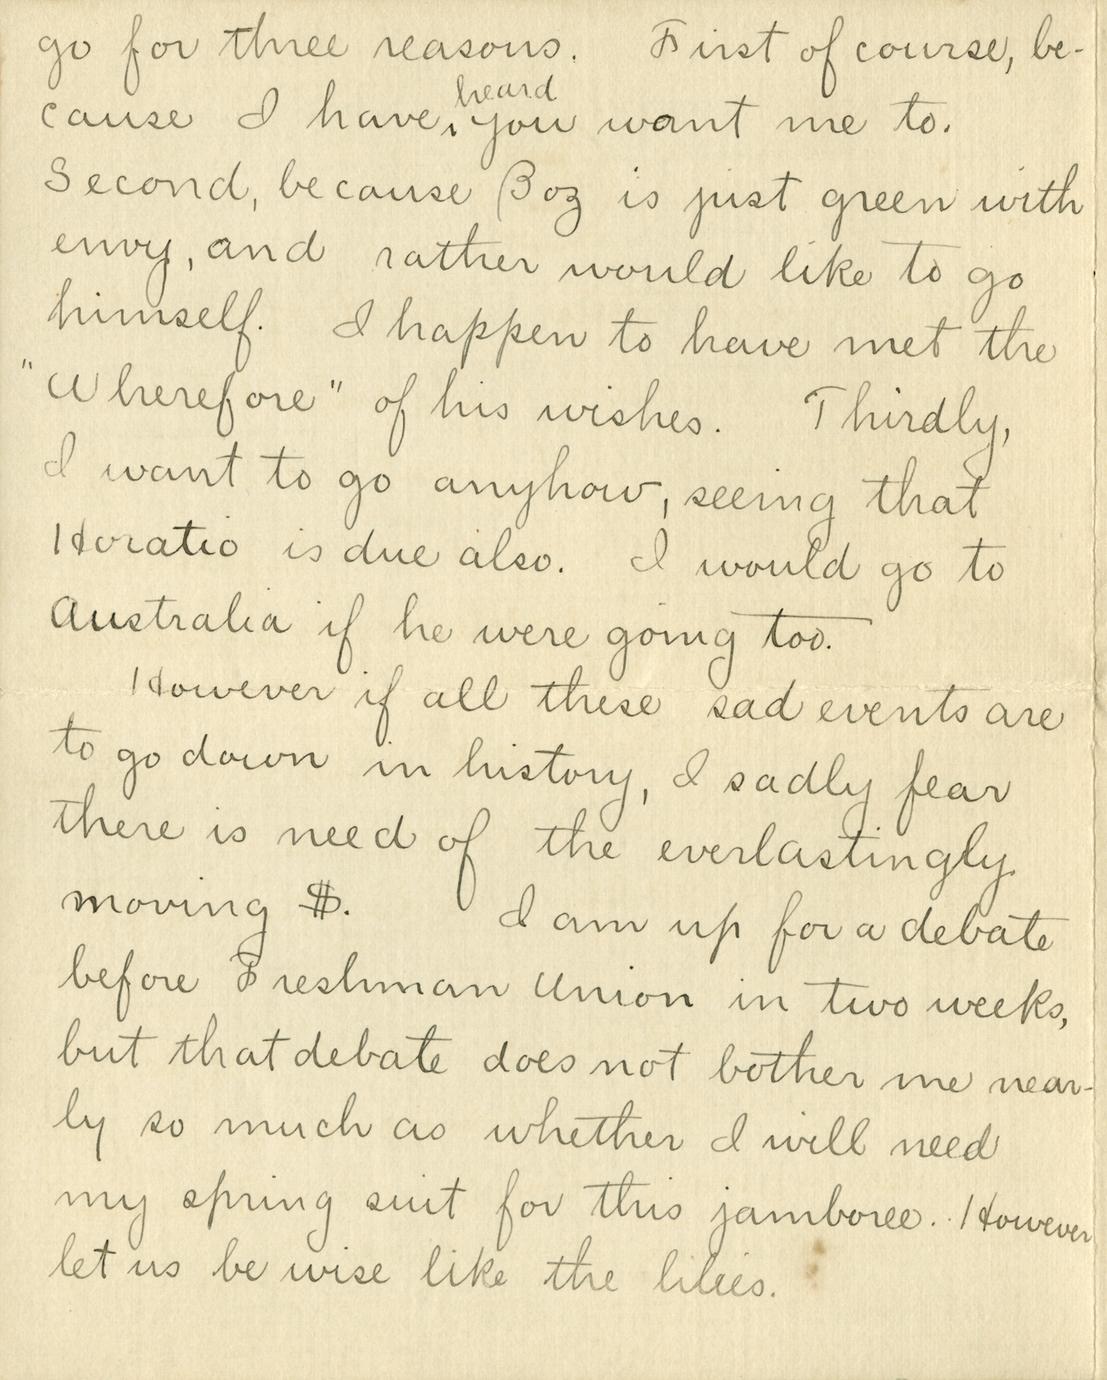 go for three reasons. First of course, be-
cause I have, heard you want me to.
Second, because Boz is just green with
envy, and rather would like to go
himself. I happen to have met the
"Wherefore" of his wishes. Thirdly,
I want to go anyhow, seeing that
Horatio is due also. I would go to
Australia if he were going too.
However if all these sad events are
to go down in history, I sadly fear
there is need of the everlastingly
moving $. I am up for a debate
before Freshman Union in two weeks,
but that debate does not bother me near-
ly so much as whether I will need
my spring suit for this jamboree. However
let us be wise like the lilies.